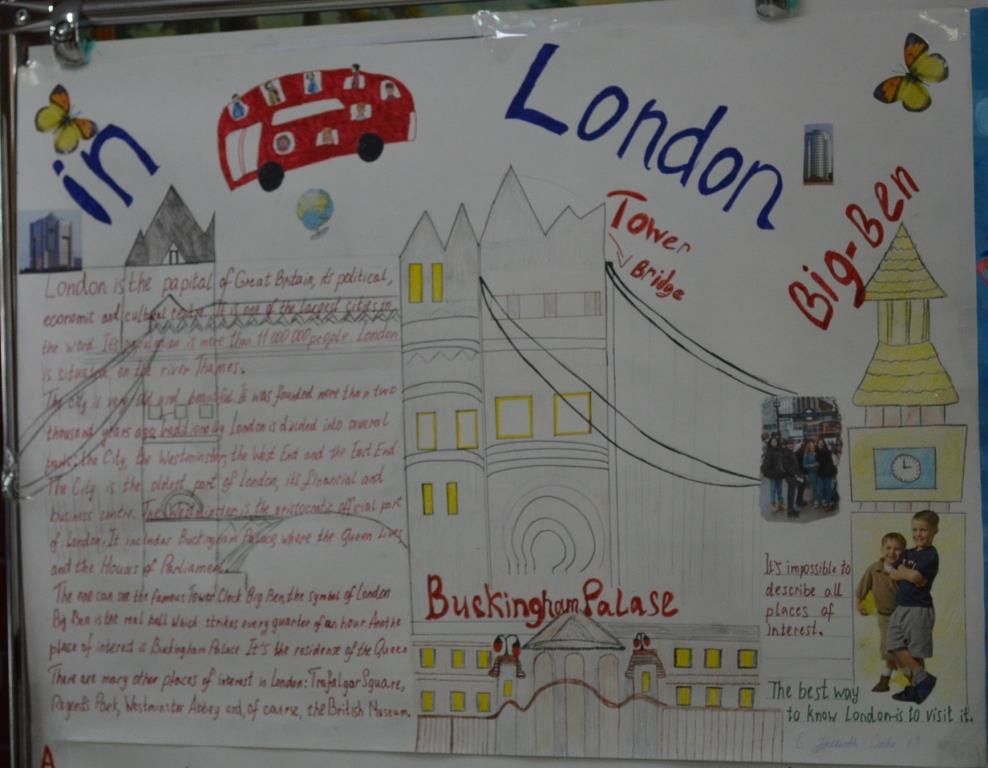 in
London
Tower
Bridge
Big-Ben
London is the papital of Great Britain, it's political,
economic and cultural centre. It is one of the largest cities in
the word. It's population is more than 11 000 000 people. London
is situated on the river Thames.
The city is very old and beautiful. It was founded more than two
thousand years ago. Traditionally London is divided into several
parts: the City, the Westminster, the West End and the East End.
The City is the oldest part of London, it's financial and
business centre. The Westminster is the aristocratic official part
of London. It includes Buckingham Palace, where the Queen Lives
and the Houses of Parliament.
The one can see the famous Tower Clock Big Ben, the symbol of London
Big Ben is the real bell which strikes every quarter of an hour. Anothe
place of interest is Buckingham Palace. It's the residense of the Queen
There are many other places of interest in London: Trafalgar Square,
Regent's Park, Westminster Abbey and, of caurse, the British Museum.
Buckingham Palase
It's impossible to
describe all
places of
interest.
The best way
to know London is to visit it.